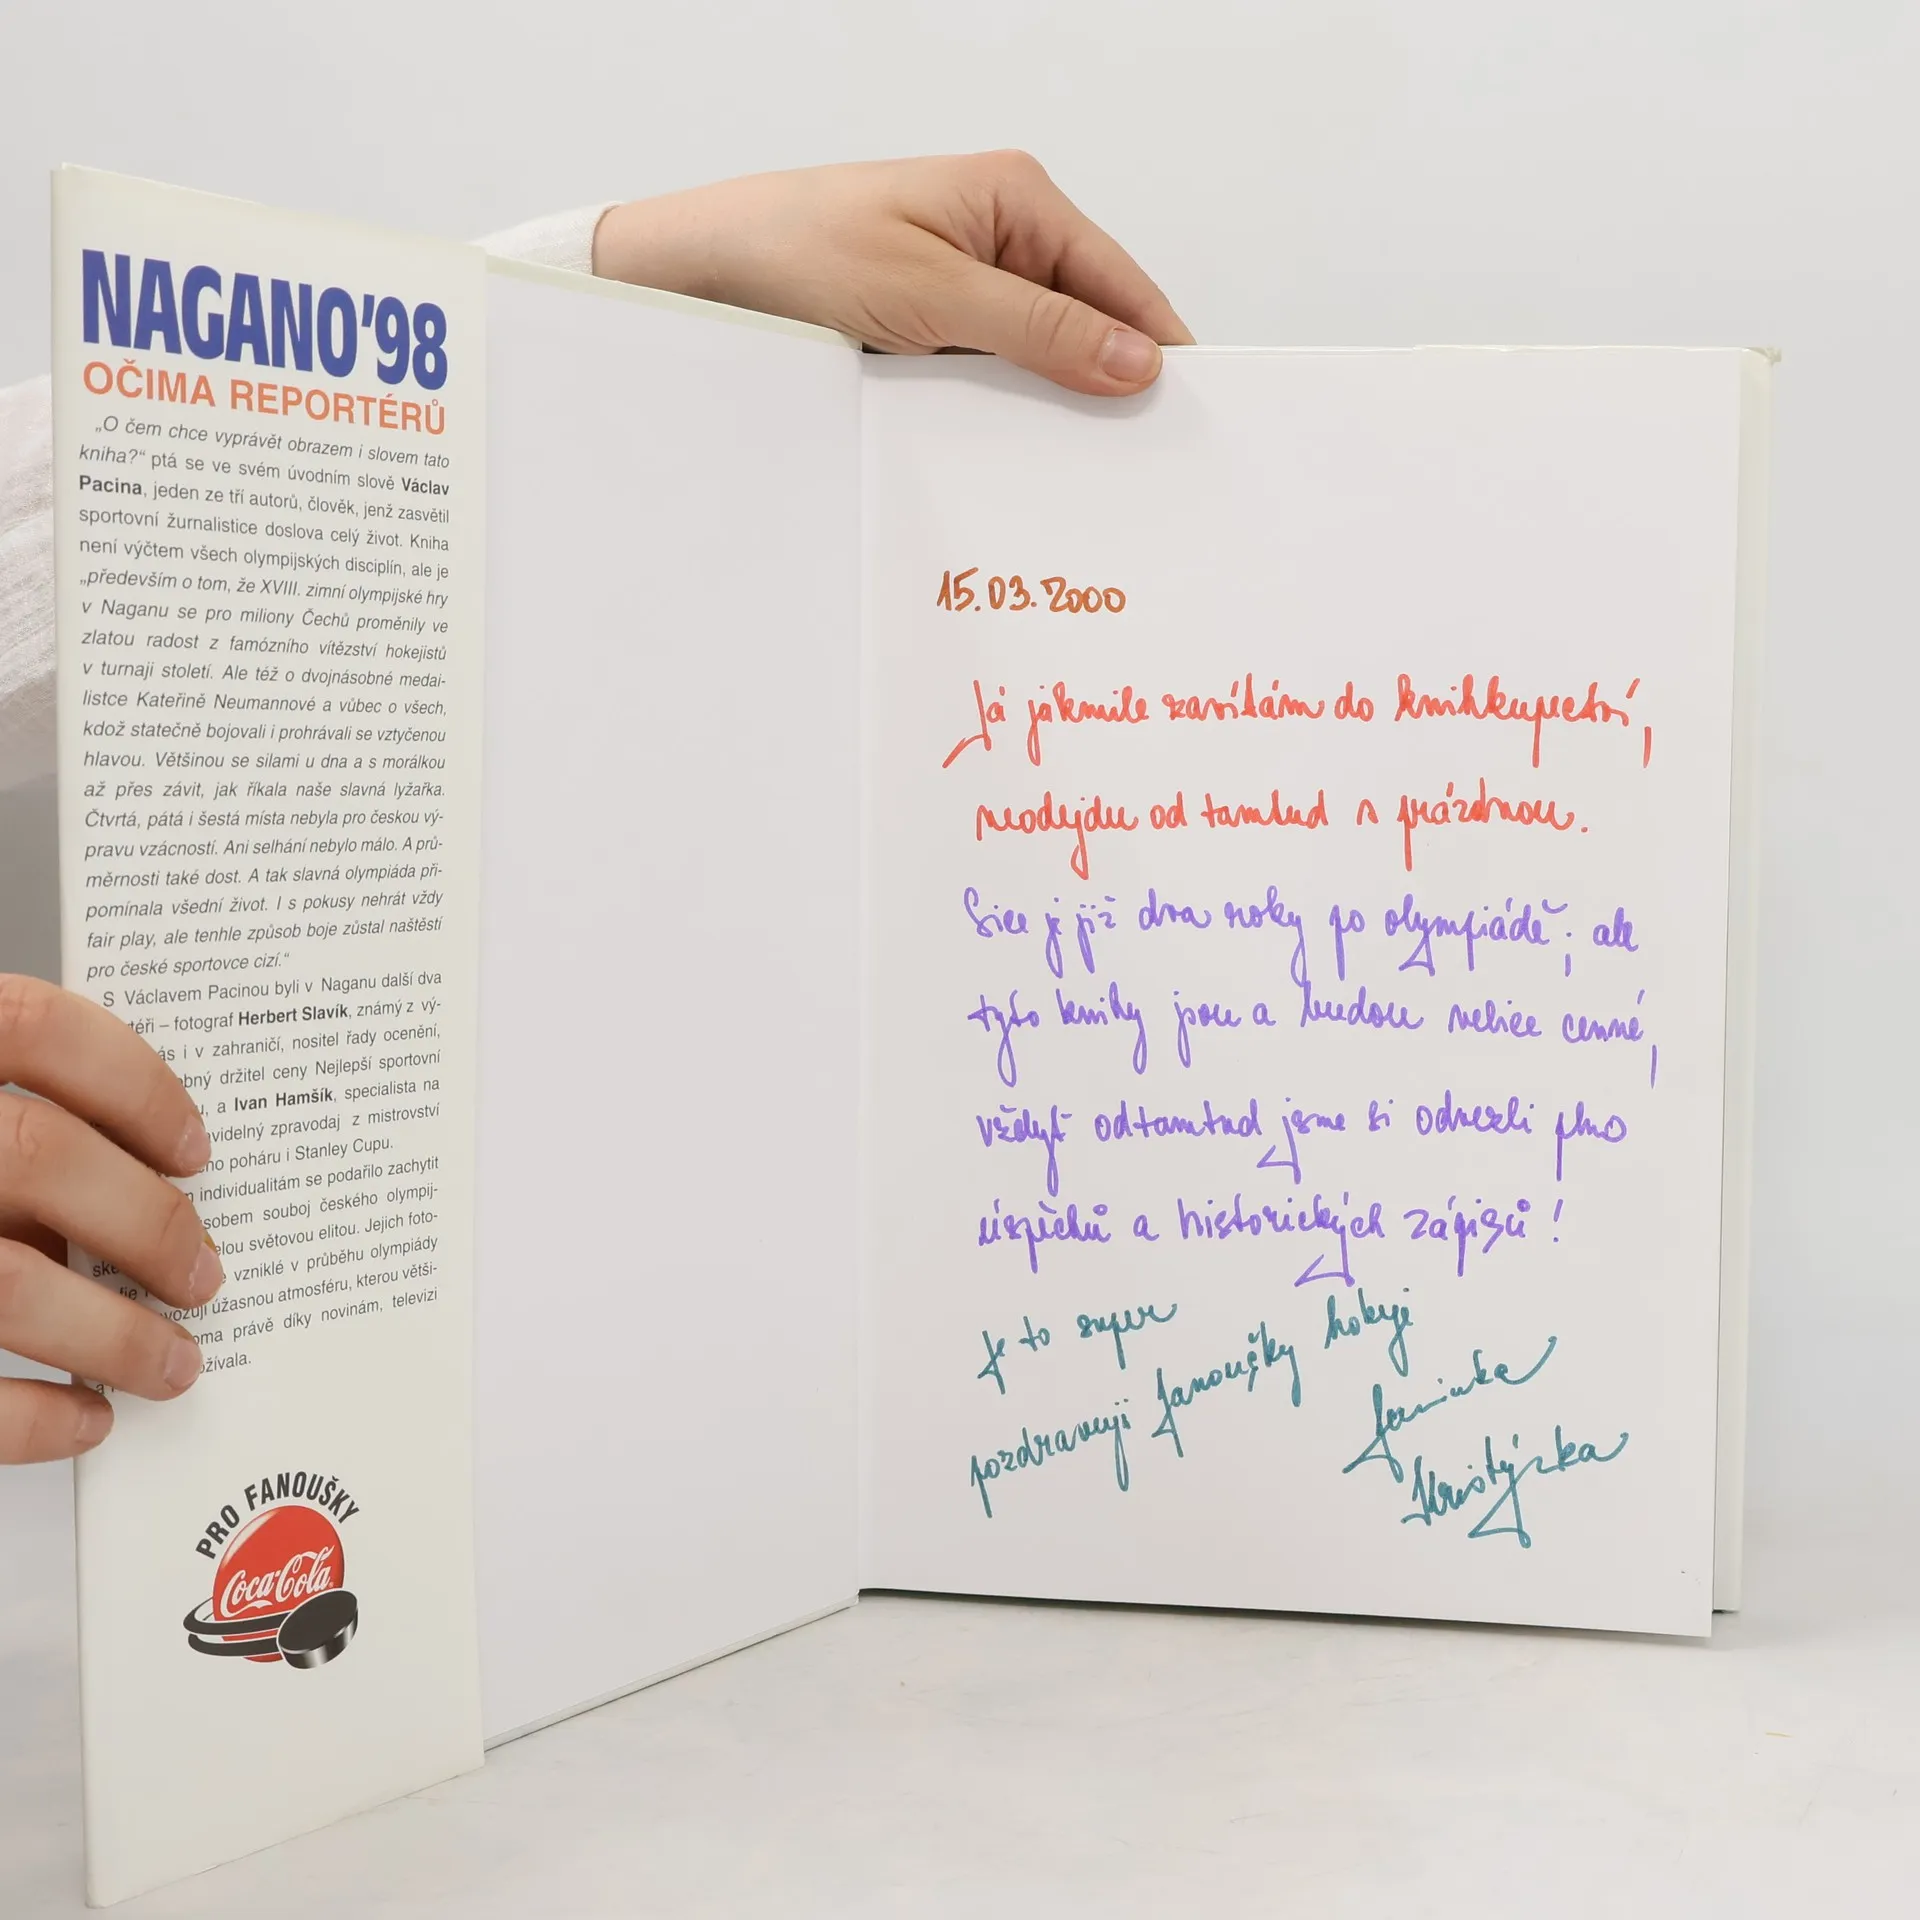 NAGANO'98
OČIMA REPORTÉRŮ
„O čem chce vyprávět obrazem i slovem tato
kniha?“ ptá se ve svém úvodním slově Václav
Pacina, jeden ze tří autorů, člověk, jenž zasvětil
sportovní žurnalistice doslova celý život. Kniha
není výčtem všech olympijských disciplín, ale je
„především o tom, že XVIII. zimní olympijské hry
v Naganu se pro miliony Čechů proměnily ve
zlatou radost z famózního vítězství hokejistů
v turnaji století. Ale též o dvojnásobné medai-
listce Kateřině Neumannové a vůbec o všech,
kdož statečně bojovali i prohrávali se vztyčenou
hlavou. Většinou se silami u dna a s morálkou
až přes závit, jak říkala naše slavná lyžařka.
Čtvrtá, pátá i šestá místa nebyla pro českou vý-
pravu vzácností. Ani selhání nebylo málo. A prů-
měrnosti také dost. A tak slavná olympiáda při-
pomínala všední život. I s pokusy nehrát vždy
fair play, ale tenhle způsob boje zůstal naštěstí
pro české sportovce cizí.“
S Václavem Pacinou byli v Naganu další dva
téři – fotograf Herbert Slavík, známý z vý-
ás i v zahraničí, nositel řady ocenění,
obný držitel ceny Nejlepší sportovní
u, a Ivan Hamšík, specialista na
videlný zpravodaj z mistrovství
ho poháru i Stanley Cupu.
individualitám se podařilo zachytit
sobem souboj českého olympij-
ske elou světovou elitou. Jejich foto-
vzniklé v průběhu olympiády
vozují úžasnou atmosféru, kterou větši-
oma právě díky novinám, televizi
a ožívala.
PRO FANOUŠKY
Coca-Cola
15.03.2000
Já jakmile zavítám do knihkupectví,
neodejdu od tamtud s prázdnou.
Sice je již dva roky po olympiádě, ale
tyto knihy jsou a budou velice cenné,
vždyť odtamtud jsme si odvezli plno
úspěchů a historických zápisů!
Je to super
pozdravuji fanoušky hokeje
Janinka
Kristýnka